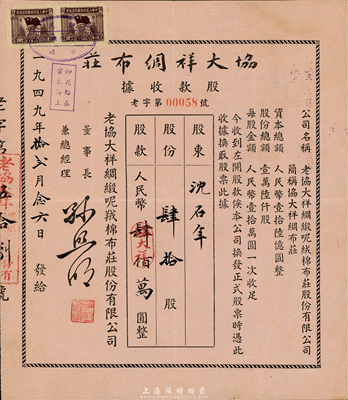 協大祥綢布莊
股款收據
老字第 00058 號
公司名稱 老協大祥綢緞呢羢棉布莊股份有限公司
簡稱協大祥綢布莊
資本總額 人民幣壹拾陸億圓整
股份總額 壹萬陸仟股
每股金額 人民幣壹拾萬圓一次收足
今收到左開股款俟本公司換發正式股票時憑此
收據換取股票此據
股東 沈石年
股份 肆拾股
股款 人民幣肆佰萬圓整
老協大祥綢緞呢羢棉布莊股份有限公司
董事長
兼總經理
一九四九年拾弍月念六日 發給